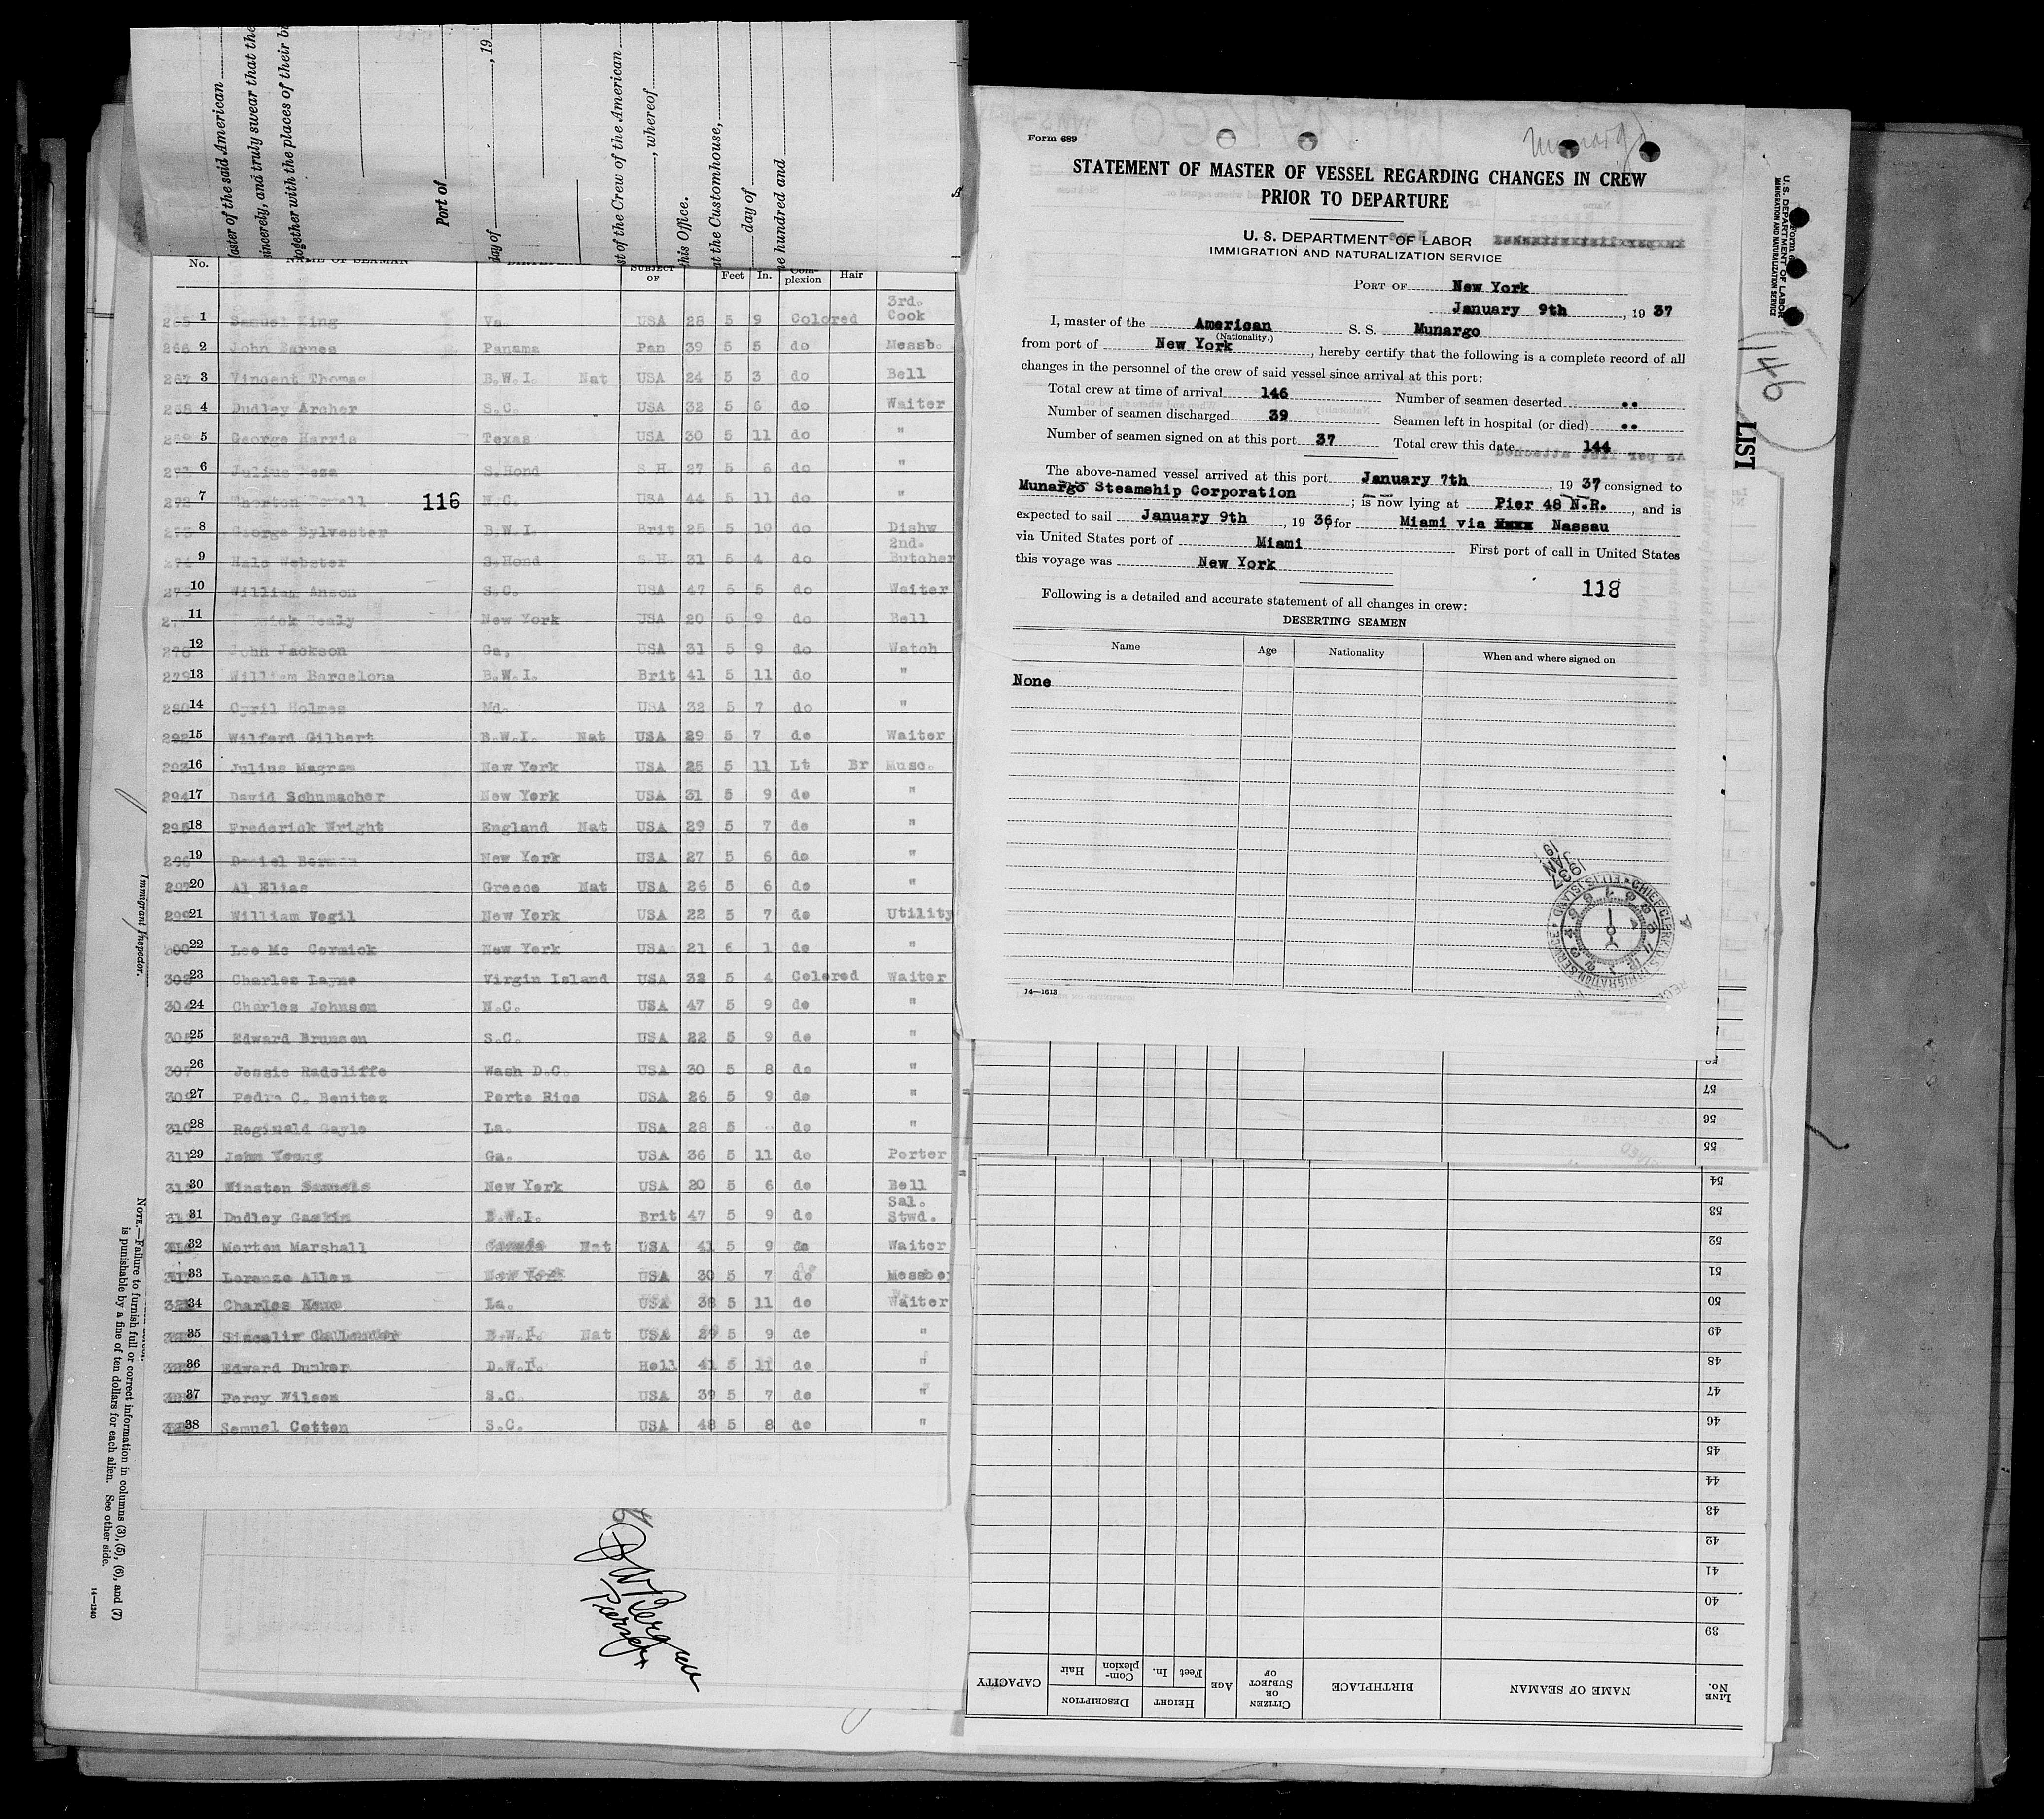 ster of the said American
sincerely, and truly swear that the
together with the places of their bi
Port of
day of , 19
st of the Crew of the American
, whereof
this Office.
at the Customhouse,
day of
ne hundred and
No. NAME OF SEAMAN SUBJECT OF Feet In. Complexion Hair
265 1 Samuel King Va. USA 28 5 9 Colored 3rd. Cook
266 2 John Barnes Panama Pan 39 5 5 do Messb.
267 3 Vincent Thomas B.W.I. Nat USA 24 5 3 do Bell
268 4 Dudley Archer S.C. USA 32 5 6 do Waiter
269 5 George Harris Texas USA 30 5 11 do "
271 6 Julius Meza S.Hond S.H. 27 5 6 do "
272 7 Thorton Powell 116 N.C. USA 44 5 11 do "
273 8 George Sylvester B.W.I. Brit 25 5 10 do Dishw
274 9 Hale Webster S.Hond S.H. 31 5 4 do 2nd. Butcher
275 10 William Anson S.C. USA 47 5 5 do Waiter
11 Healy New York USA 20 5 9 do Bell
278 12 John Jackson Ga, USA 31 5 9 do Watch
279 13 William Barcelona B.W.I. Brit 41 5 11 do "
280 14 Cyril Holmes Md. USA 32 5 7 do "
292 15 Wilford Gilbert B.W.I. Nat USA 29 5 7 do Waiter
293 16 Julius Magram New York USA 25 5 11 Lt Br Musc.
294 17 David Schumacher New York USA 31 5 9 do "
295 18 Frederick Wright England Nat USA 29 5 7 do "
296 19 Daniel Berman New York USA 27 5 6 do "
297 20 Al Elias Greece Nat USA 26 5 6 do "
299 21 William Vogil New York USA 22 5 7 do Utility
300 22 Lee Mc Cormick New York USA 21 6 1 do "
303 23 Charles Layne Virgin Island USA 32 5 4 Colored Waiter
304 24 Charles Johnson N.C. USA 47 5 9 do "
305 25 Edward Brunson S.C. USA 22 5 9 do "
307 26 Jessie Radcliffe Wash D.C. USA 30 5 8 do "
309 27 Pedro C. Benitez Porto Rico USA 26 5 9 do "
310 28 Reginald Gayle La. USA 28 5 do "
311 29 John Young Ga. USA 36 5 11 do Porter
312 30 Winston Samuels New York USA 20 5 6 do Bell
31 Dudley Gaskin B.W.I. Brit 47 5 9 do Sal. Stwd.
32 Morton Marshall Canada Nat USA 41 5 9 do Waiter
317 33 Lorenzo Allen New York USA 30 5 7 do Messbo
34 Charles Keno La. USA 38 5 11 do Waiter
35 Sincalir Callender B.W.I. Nat USA 29 5 9 do "
36 Edward Dunker D.W.I. Holl 41 5 11 do "
37 Percy Wilson S.C. USA 39 5 7 do "
38 Samuel Cotten S.C. USA 48 5 8 do "
Immigrant Inspector.
NOTE.—Failure to furnish full or correct information in columns (3), (5), (6), and (7)
is punishable by a fine of ten dollars for each alien. See other side.
14—1240
Form 689
Munargo
STATEMENT OF MASTER OF VESSEL REGARDING CHANGES IN CREW
PRIOR TO DEPARTURE
U. S. DEPARTMENT OF LABOR
IMMIGRATION AND NATURALIZATION SERVICE
PORT OF New York
January 9th , 19 37
I, master of the American S. S. Munargo
(Nationality.)
from port of New York , hereby certify that the following is a complete record of all
changes in the personnel of the crew of said vessel since arrival at this port:
Total crew at time of arrival 146 Number of seamen deserted ..
Number of seamen discharged 39 Seamen left in hospital (or died) ..
Number of seamen signed on at this port 37 Total crew this date 144
The above-named vessel arrived at this port January 7th , 19 37 consigned to
Munargo Steamship Corporation ; is now lying at Pier 48 N.R. , and is
expected to sail January 9th , 19 36, for Miami via xxxx Nassau
via United States port of Miami First port of call in United States
this voyage was New York
118
Following is a detailed and accurate statement of all changes in crew:
DESERTING SEAMEN
Name Age Nationality When and where signed on
None
14—1613
1937 JAN 9
CHIEF CLERK U.S. IMMIGRATION SERVICE ELLIS ISLAND
U. S. DEPARTMENT OF LABOR
IMMIGRATION AND NATURALIZATION SERVICE
146
LIST
57
56
55
54
53
52
51
50
49
48
47
46
45
44
43
42
41
40
39
LINE No. NAME OF SEAMAN BIRTHPLACE CITIZEN OR SUBJECT OF AGE HEIGHT Feet In. DESCRIPTION Complexion Hair CAPACITY